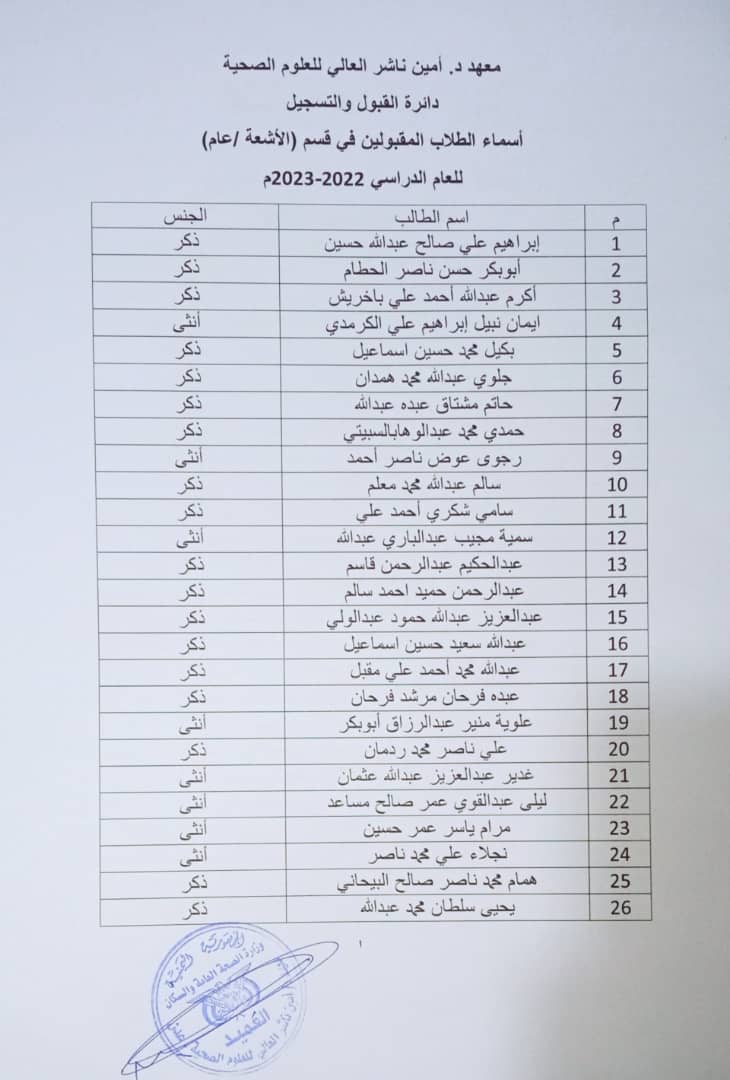 معهد د. أمين ناشر العالي للعلوم الصحية
دائرة القبول والتسجيل
أسماء الطلاب المقبولين في قسم (الأشعة /عام)
للعام الدراسي 2022-2023م
م اسم الطالب الجنس
1 إبراهيم علي صالح عبدالله حسين ذكر
2 أبوبكر حسن ناصر الحطام ذكر
3 أكرم عبدالله أحمد علي باخريش ذكر
4 ايمان نبيل إبراهيم علي الكرمدي أنثى
5 بكيل محمد حسين اسماعيل ذكر
6 جلوي عبدالله محمد همدان ذكر
7 حاتم مشتاق عبده عبدالله ذكر
8 حمدي محمد عبدالوهابالسبيتي ذكر
9 رجوى عوض ناصر أحمد أنثى
10 سالم عبدالله محمد معلم ذكر
11 سامي شكري أحمد علي ذكر
12 سمية مجيب عبدالباري عبدالله أنثى
13 عبدالحكيم عبدالرحمن قاسم ذكر
14 عبدالرحمن حميد احمد سالم ذكر
15 عبدالعزيز عبدالله حمود عبدالولي ذكر
16 عبدالله سعيد حسين اسماعيل ذكر
17 عبدالله محمد أحمد علي مقبل ذكر
18 عبده فرحان مرشد فرحان ذكر
19 علوية منير عبدالرزاق أبوبكر أنثى
20 علي ناصر محمد ردمان ذكر
21 غدير عبدالعزيز عبدالله عثمان أنثى
22 ليلى عبدالقوي عمر صالح مساعد أنثى
23 مرام ياسر عمر حسين أنثى
24 نجلاء علي محمد ناصر أنثى
25 همام محمد ناصر صالح البيحاني ذكر
26 يحيى سلطان محمد عبدالله ذكر
١
الجمهورية اليمنية
وزارة الصحة العامة والسكان
العميد